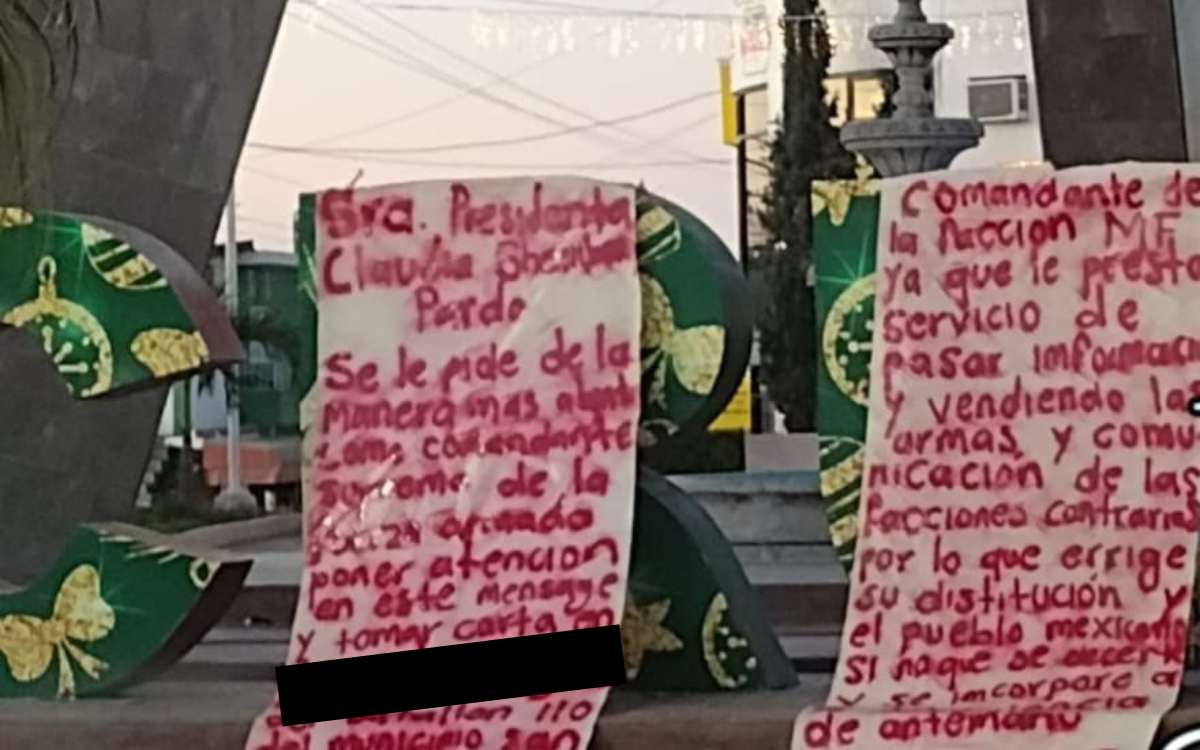 Sra. Presidenta
Claudia Sheinbaum
Pardo
Se le pide de la
manera mas atent
como comandante
suprema de la
fuerza armada
poner atencion
en este mensage
y tomar carta en
del batallon 110
del municipio san
Comandante de
la faccion MF
ya que le presta
servicio de
pasar informaci
y vendiendo la
armas, y comu
nicacion de las
facciones contrarias
por lo que errige
su distitución y
el pueblo mexicano
si
y se incorpore a
de antemano